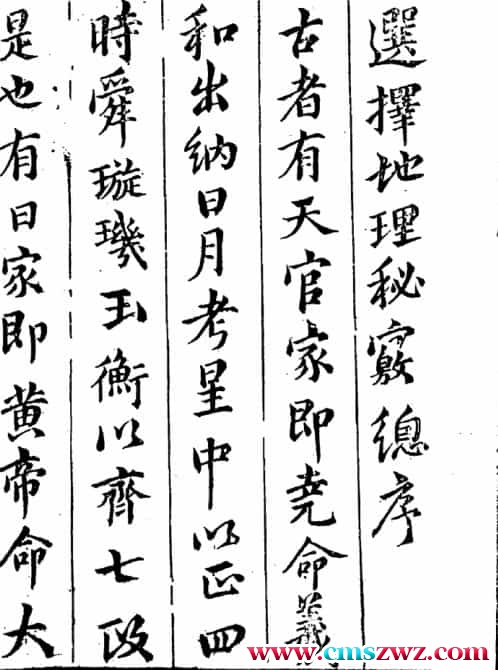 選擇地理秘竅總序
古者有天官家即堯命羲
和出納日月考星中以正四
時舜璇璣玉衡以齊七政
是也有日家即黄帝命大
www.cmszwz.com